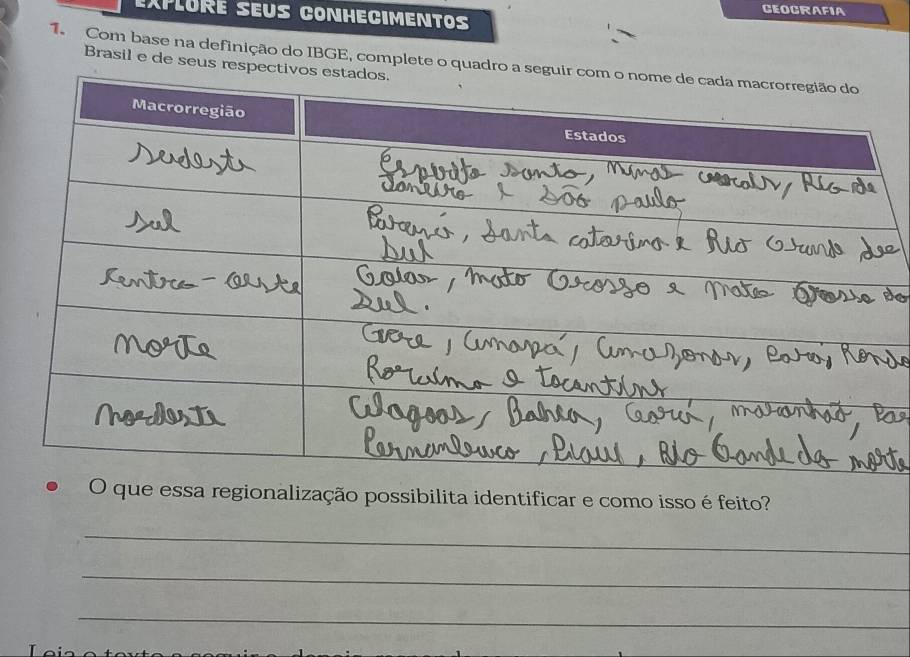 EXPLORE SEUS CONHECIMENTOS
GEOGRAFIA
1. Com base na definição do IBGE, complete o quadro a seguir com o nome de cada macrorregião do
Brasil e de seus respectivos estados.
Macrorregião
Estados
Sudeste
Espírito Santo, Minas Rio de
Janeiro e São Paulo
Sul
Paraná, Santa Catarina e Rio Grande do
Sul
Centro-Oeste
Goias, Mato Grosso e Mato Grosso do
Sul.
Norte
Acre, Amapá, Amazonas, Pará, Rondo
Roraima e Tocantins
Nordeste
Alagoas, Bahia, Ceará, Maranhão, Par
Pernambuco, Piauí, Rio Grande do Norte
• O que essa regionalização possibilita identificar e como isso é feito?
Leia o texto a seguir